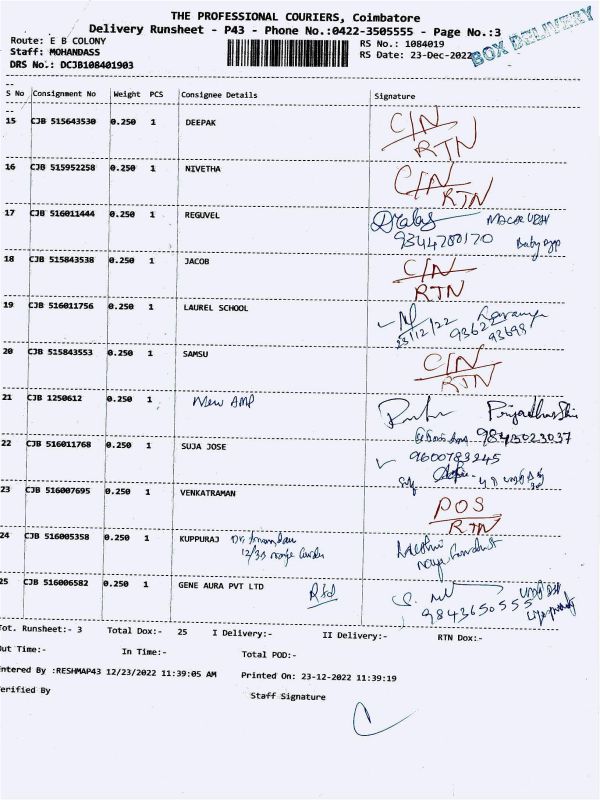 THE PROFESSIONAL COURIERS, Coimbatore
Delivery Runsheet - P43 - Phone No.:0422-3505555 - Page No.:3
BOX DELIVERY
Route: E B COLONY
RS No.: 1084019
Staff: MOHANDASS
RS Date: 23-Dec-2022
DRS No.: DCJB108401903
S No Consignment No Weight PCS Consignee Details Signature
15 CJB 515643530 0.250 1 DEEPAK C/N
RTN
16 CJB 515952258 0.250 1 NIVETHA C/N
RTN
17 CJB 516011444 0.250 1 REGUVEL
9344700170
18 CJB 515843538 0.250 1 JACOB C/N
RTN
19 CJB 516011756 0.250 1 LAUREL SCHOOL
23/12/22 93629
93698
20 CJB 515843553 0.250 1 SAMSU C/N
RTN
21 CJB 1250612 0.250 1 New AMP
9843023037
22 CJB 516011768 0.250 1 SUJA JOSE 9600783245
23 CJB 516007695 0.250 1 VENKATRAMAN POS
RTN
24 CJB 516005358 0.250 1 KUPPURAJ Dr.
12/33
25 CJB 516006582 0.250 1 GENE AURA PVT LTD
9843650555
Tot. Runsheet:- 3 Total Dox:- 25 I Delivery:- II Delivery:- RTN Dox:-
Out Time:- In Time:- Total POD:-
Entered By :RESHMAP43 12/23/2022 11:39:05 AM Printed On: 23-12-2022 11:39:19
Verified By Staff Signature